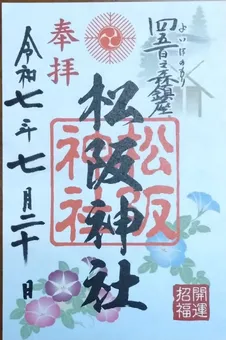 四五百之森鎮座
よいほのもり
開運
招福
松阪神社
松阪
神社
奉拝
令和七年七月二十日